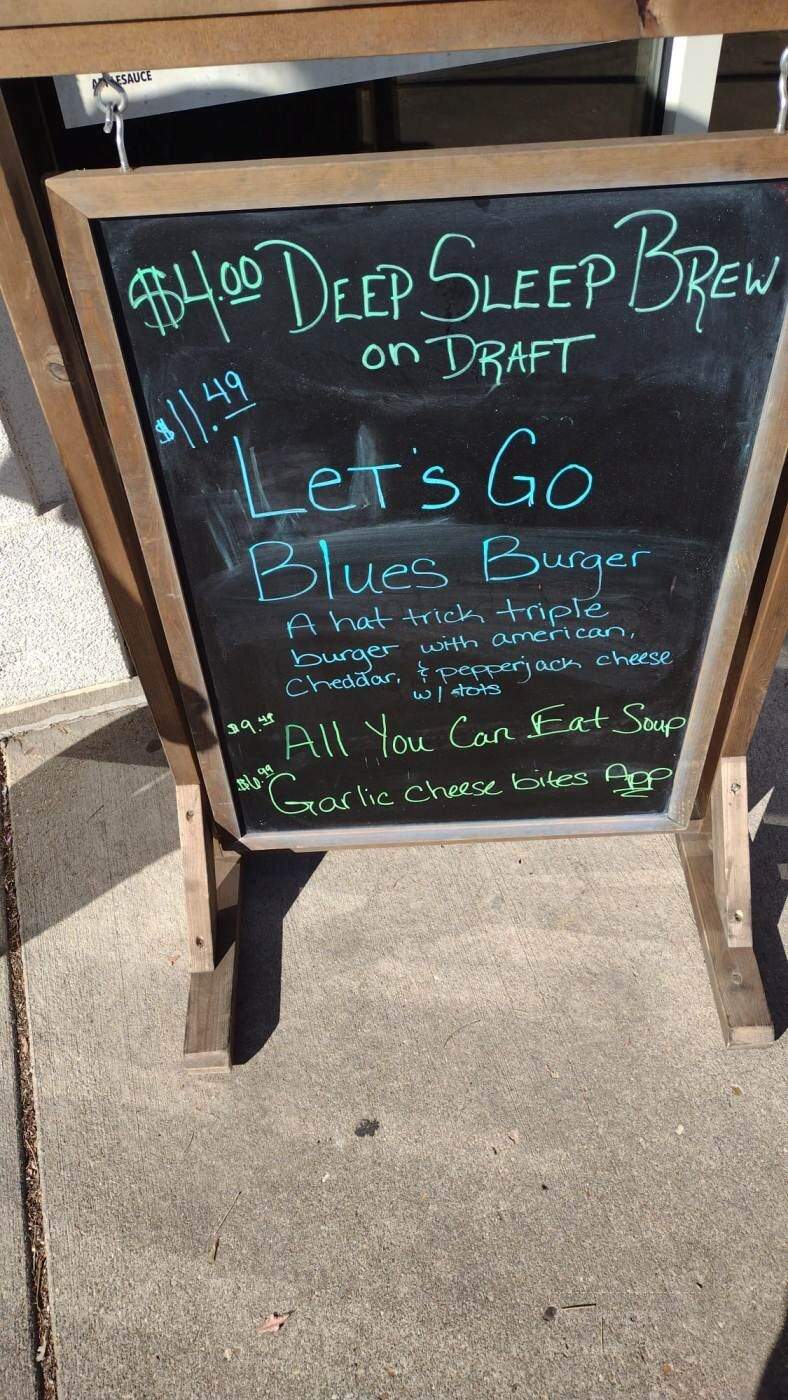 APPLESAUCE
$4.00 DEEP SLEEP BREW
on DRAFT
$11.49
LeT's Go
Blues Burger
A hat trick triple
burger with american,
Cheddar, & pepperjack cheese
w/ tots
All You Can Eat Soup
$6.99 Garlic cheese bites App